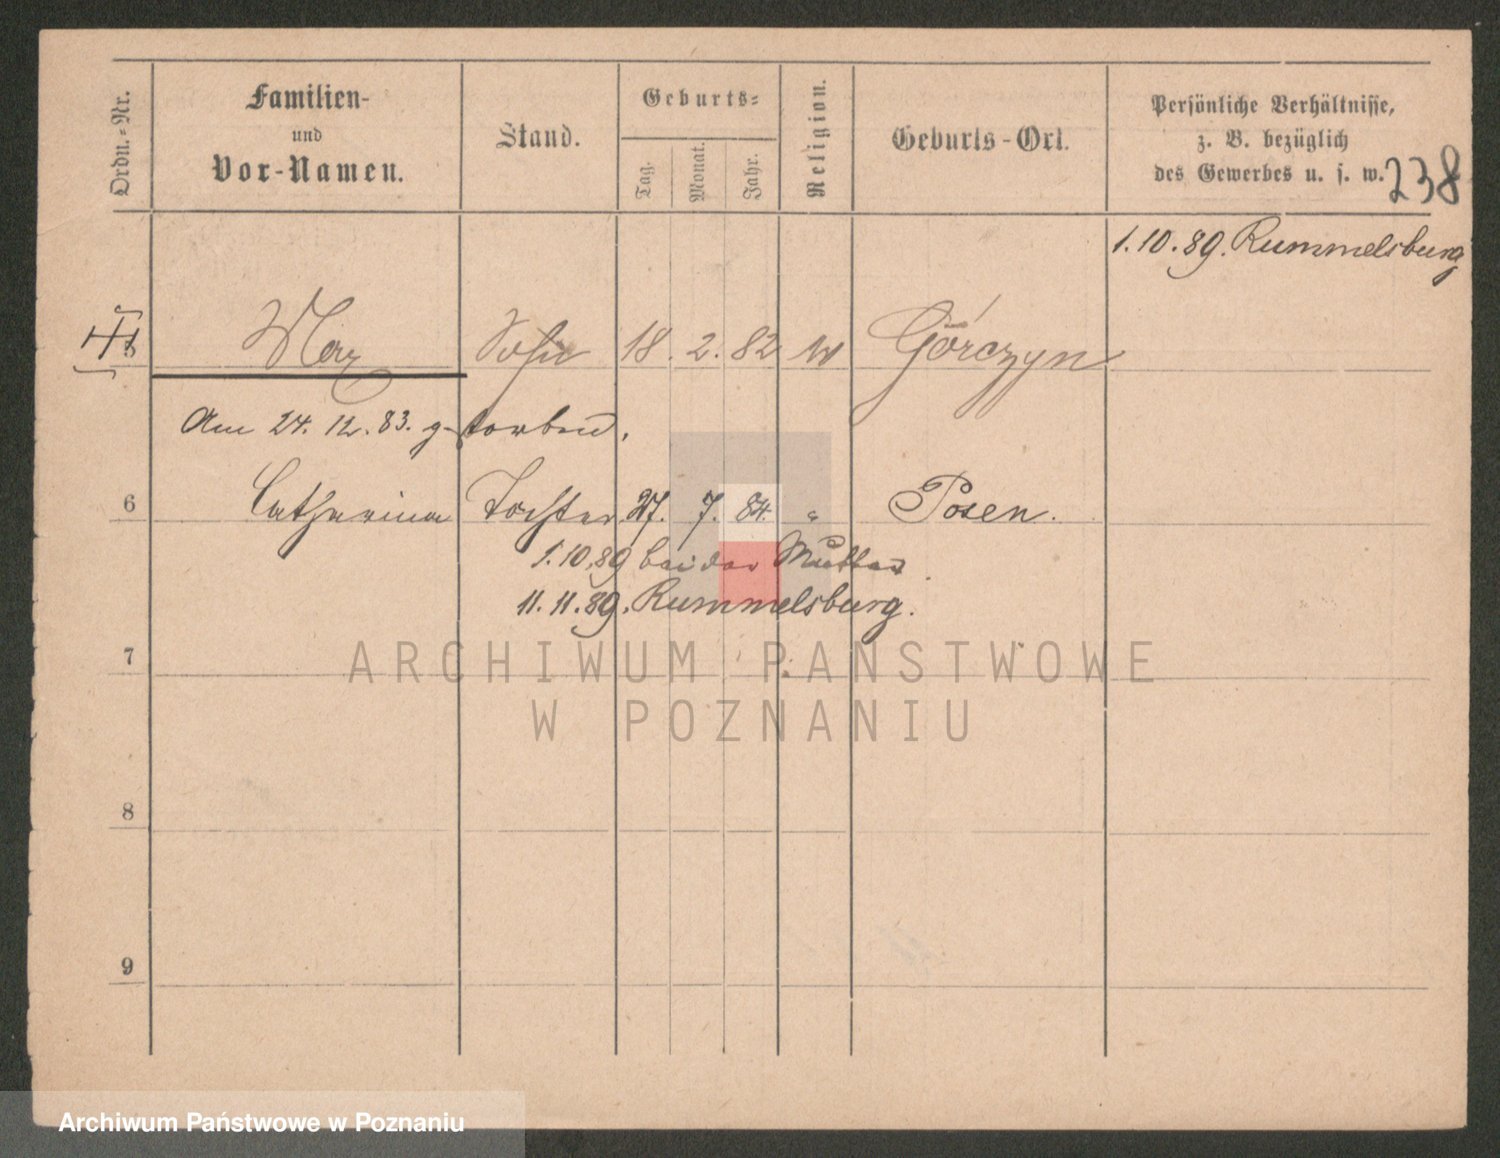 Ordn.-Nr.
Familien-
und
Vor-Namen.
Stand.
Geburts-
Tag.
Monat.
Jahr.
Religion.
Geburts-Ort.
Persönliche Verhältnisse,
z. B. bezüglich
des Gewerbes u. s. w.
238
1.10.89. Rummelsburg
5 Sohn 18. 2. 82 Górczyn
Am 24. 12. 83. gestorben.
6 Catharina Tochter 27. 7. 84. " Posen.
1.10.89 bei der Mutter
11.11.89. Rummelsburg.
7
ARCHIWUM PAŃSTWOWE
W POZNANIU
8
9
Archiwum Państwowe w Poznaniu